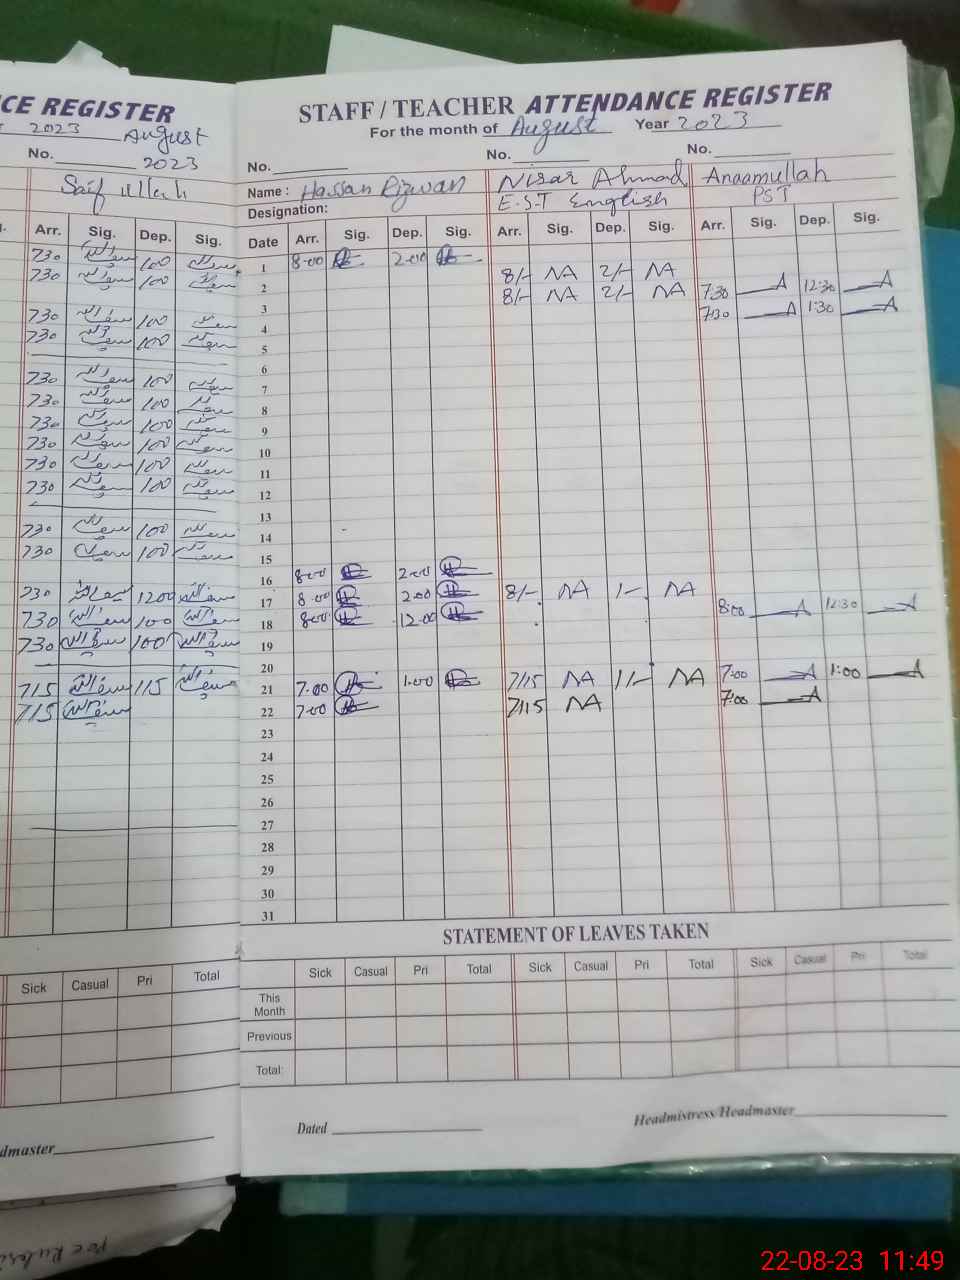 CE REGISTER
2023 August
No. 2023
Saif ullah
Arr. Sig. Dep. Sig.
730 سیف اللہ 100 سیف اللہ
730 سیف اللہ 100
730 سیف اللہ 100
730 100
730 100
730 100
730 100
730 100
730 100
730 100
730 100
730 100
730 1200
730 سیف اللہ 100 سیف اللہ
730 سیف اللہ 100 سیف اللہ
715 سیف اللہ 115 سیف اللہ
715 سیف اللہ
Sick Casual Pri Total
dmaster
STAFF / TEACHER ATTENDANCE REGISTER
For the month of August Year 2023
No. No. No.
Name : Hassan Rizwan Nisar Ahmad Anaamullah
Designation: E.S.T English PST
Date Arr. Sig. Dep. Sig. Arr. Sig. Dep. Sig. Arr. Sig. Dep. Sig.
1 8-00 2-00
2 8/- NA 2/- NA
3 8/- NA 2/- NA 7:30 A 12:30 A
4 7:30 A 1:30 A
5
6
7
8
9
10
11
12
13
14
15
16 8-00 2-00
17 8-00 2-00 8/- NA 1- NA
18 8-00 12-00 8:00 A 12:30 A
19
20
21 7-00 1-00 7/15 NA 1/- NA 7:00 A 1:00 A
22 7-00 7/15 NA 7:00 A
23
24
25
26
27
28
29
30
31
STATEMENT OF LEAVES TAKEN
Sick Casual Pri Total Sick Casual Pri Total Sick Casual Pri Total
This Month
Previous
Total:
Dated Headmistress/Headmaster
22-08-23 11:49